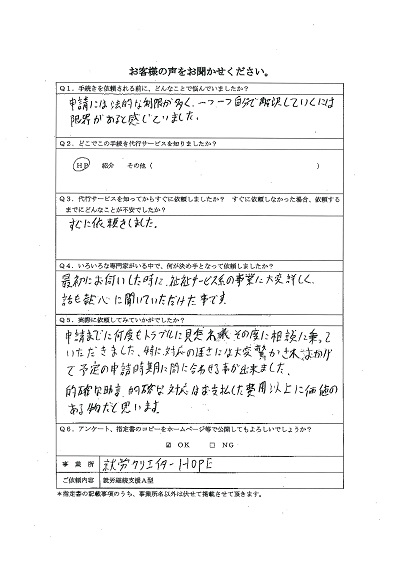 お客様の声をお聞かせください。
Q1．手続きを依頼される前に、どんなことで悩んでいましたか？
申請には法的な制限が多く、一つ一つ自分で解決していくには
限界があると感じていました。
Q2．どこでこの手続き代行サービスを知りましたか？
HP 紹介 その他（ ）
Q3．代行サービスを知ってからすぐに依頼しましたか？ すぐに依頼しなかった場合、依頼する
までにどんなことが不安でしたか？
すぐに依頼しました。
Q4．いろいろな専門家がいる中で、何が決め手となって依頼しましたか？
最初にお伺いした時に、福祉サービス系の事業に大変詳しく、
話も熱心に聞いていただけた事です。
Q5．実際に依頼してみていかがでしたか？
申請までに何度もトラブルに見舞われ、その度に相談に乗って
いただきました。特に対応の速さには大変驚かされ、おかげ
で予定の申請時期に間に合わせる事が出来ました。
的確な助言、的確な対応はお支払した費用以上に価値の
ある物だと思います。
Q6．アンケート、指定書のコピーをホームページ等で公開してもよろしいでしょうか？
☑ OK □ NG
事業所 就労クリエイターHOPE
ご依頼内容 就労継続支援A型
＊指定書の記載事項のうち、事業所名以外は伏せて掲載させて頂きます。